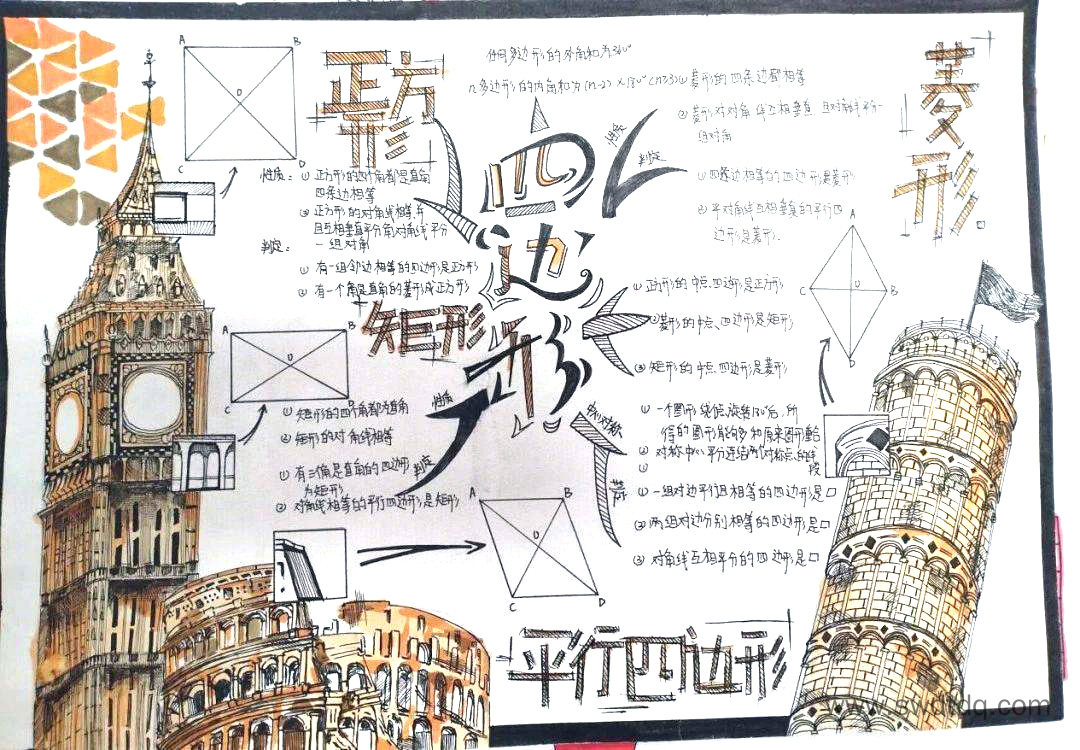 正方形
A B
O
C D
性质：① 正方形的四个角都是直角
四条边相等
② 正方形的对角线相等,并
且互相垂直平分,每对角线平分
一组对角
判定：
① 有一组邻边相等的四边形是正方形
② 有一个角是直角的菱形成正方形
任何多边形的外角和为360°
n多边形的内角和为(n-2)×180°(n≥3)
四边形
菱形
性质
① 菱形的四条边都相等
② 菱形对对角线互相垂直 且对角线平分一
组对角
判定
① 四条边相等的四边形是菱形
② 平对角线互相垂直的平行四
边形是菱形.
A
C O B
① 正方形的中点四边形是正方形
② 菱形的中点四边形是矩形
③ 矩形的中点四边形是菱形
矩形
A B
O
C D
性质
① 矩形的四个角都为直角
② 矩形的对角线相等
判定
① 有三角是直角的四边形
为矩形
② 对角线相等的平行四边形是矩形
中心对称
① 一个图形绕 旋转180°后,所
得的图形能够和原来图形重合
② 对称中心平分连结两 对称点的线
段
判定
① 一组对边平行且相等的四边形是□
② 两组对边分别相等的四边形是□
③ 对角线互相平分的四边形是□
A B
O
C D
平行四边形